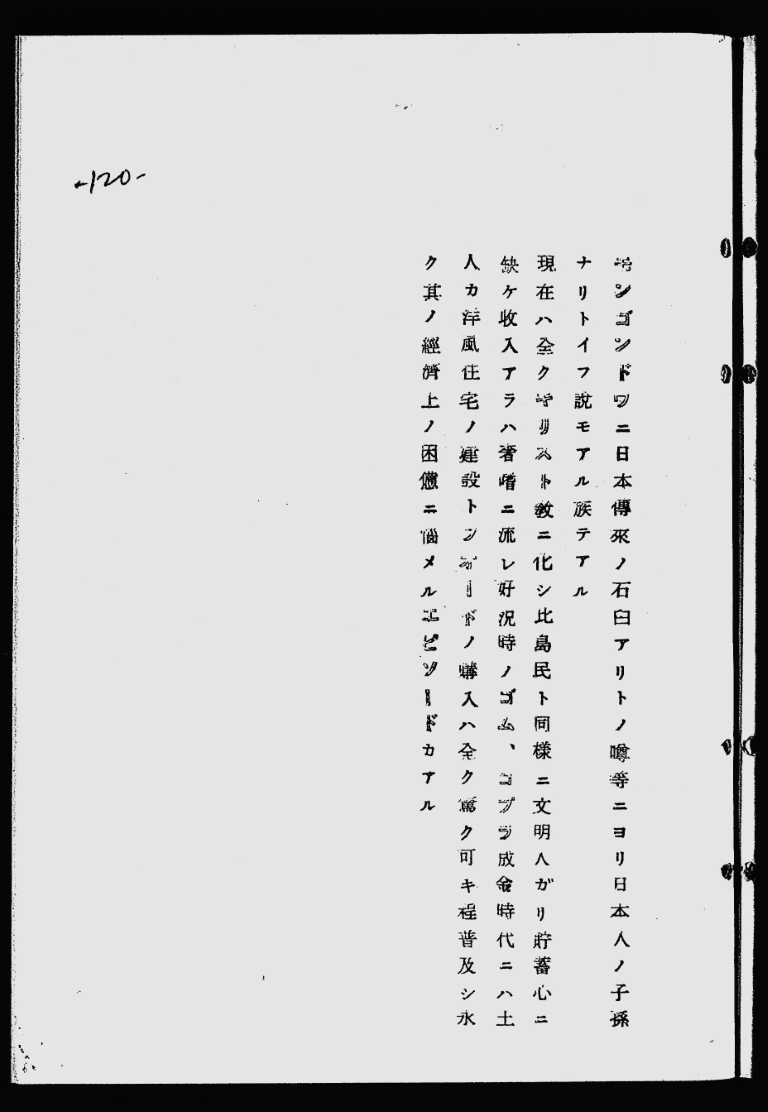 -120-
キンゴンドワニ日本傳來ノ石臼アリトノ噂等ニヨリ日本人ノ子孫
ナリトイフ說モアル族テアル
現在ハ全クキリスト敎ニ化シ比島民ト同樣ニ文明人ガリ貯蓄心ニ
缺ケ收入アラハ奢嗜ニ流レ好況時ノゴム、コプラ成金時代ニハ土
人カ洋風住宅ノ建設トフォードノ購入ハ全ク驚ク可キ程普及シ永
ク其ノ經濟上ノ困憊ニ惱メルエピソードカアル